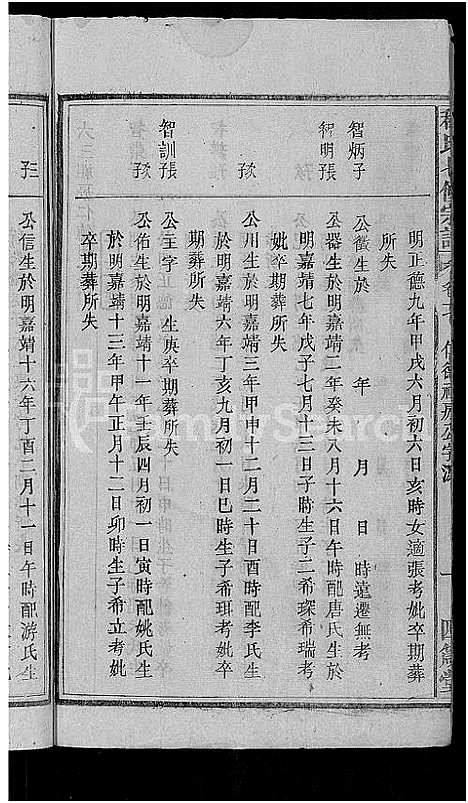 明正德九年甲戌六月初六日亥時女適張考妣卒期葬
所失
智炳子
公徵生於 年 月 日 時遠遷無考
智明長
公器生於明嘉靖二年癸未八月十六日午時配唐氏生於
明嘉靖七年戊子七月十三日子時生子二希琛希瑞考
妣卒期葬所失
公川生於明嘉靖三年甲申十二月二十日酉時配李氏生
於明嘉靖六年丁亥九月初一日巳時生子希珥考妣卒
期葬所失
智訓長
公主字 生庚卒期葬所失
公佑生於明嘉靖十一年壬辰四月初一日寅時配姚氏生
於明嘉靖十三年甲午正月十二日卯時生子希立考妣
卒期葬所失
公信生於明嘉靖十六年丁酉二月十一日午時配游氏生